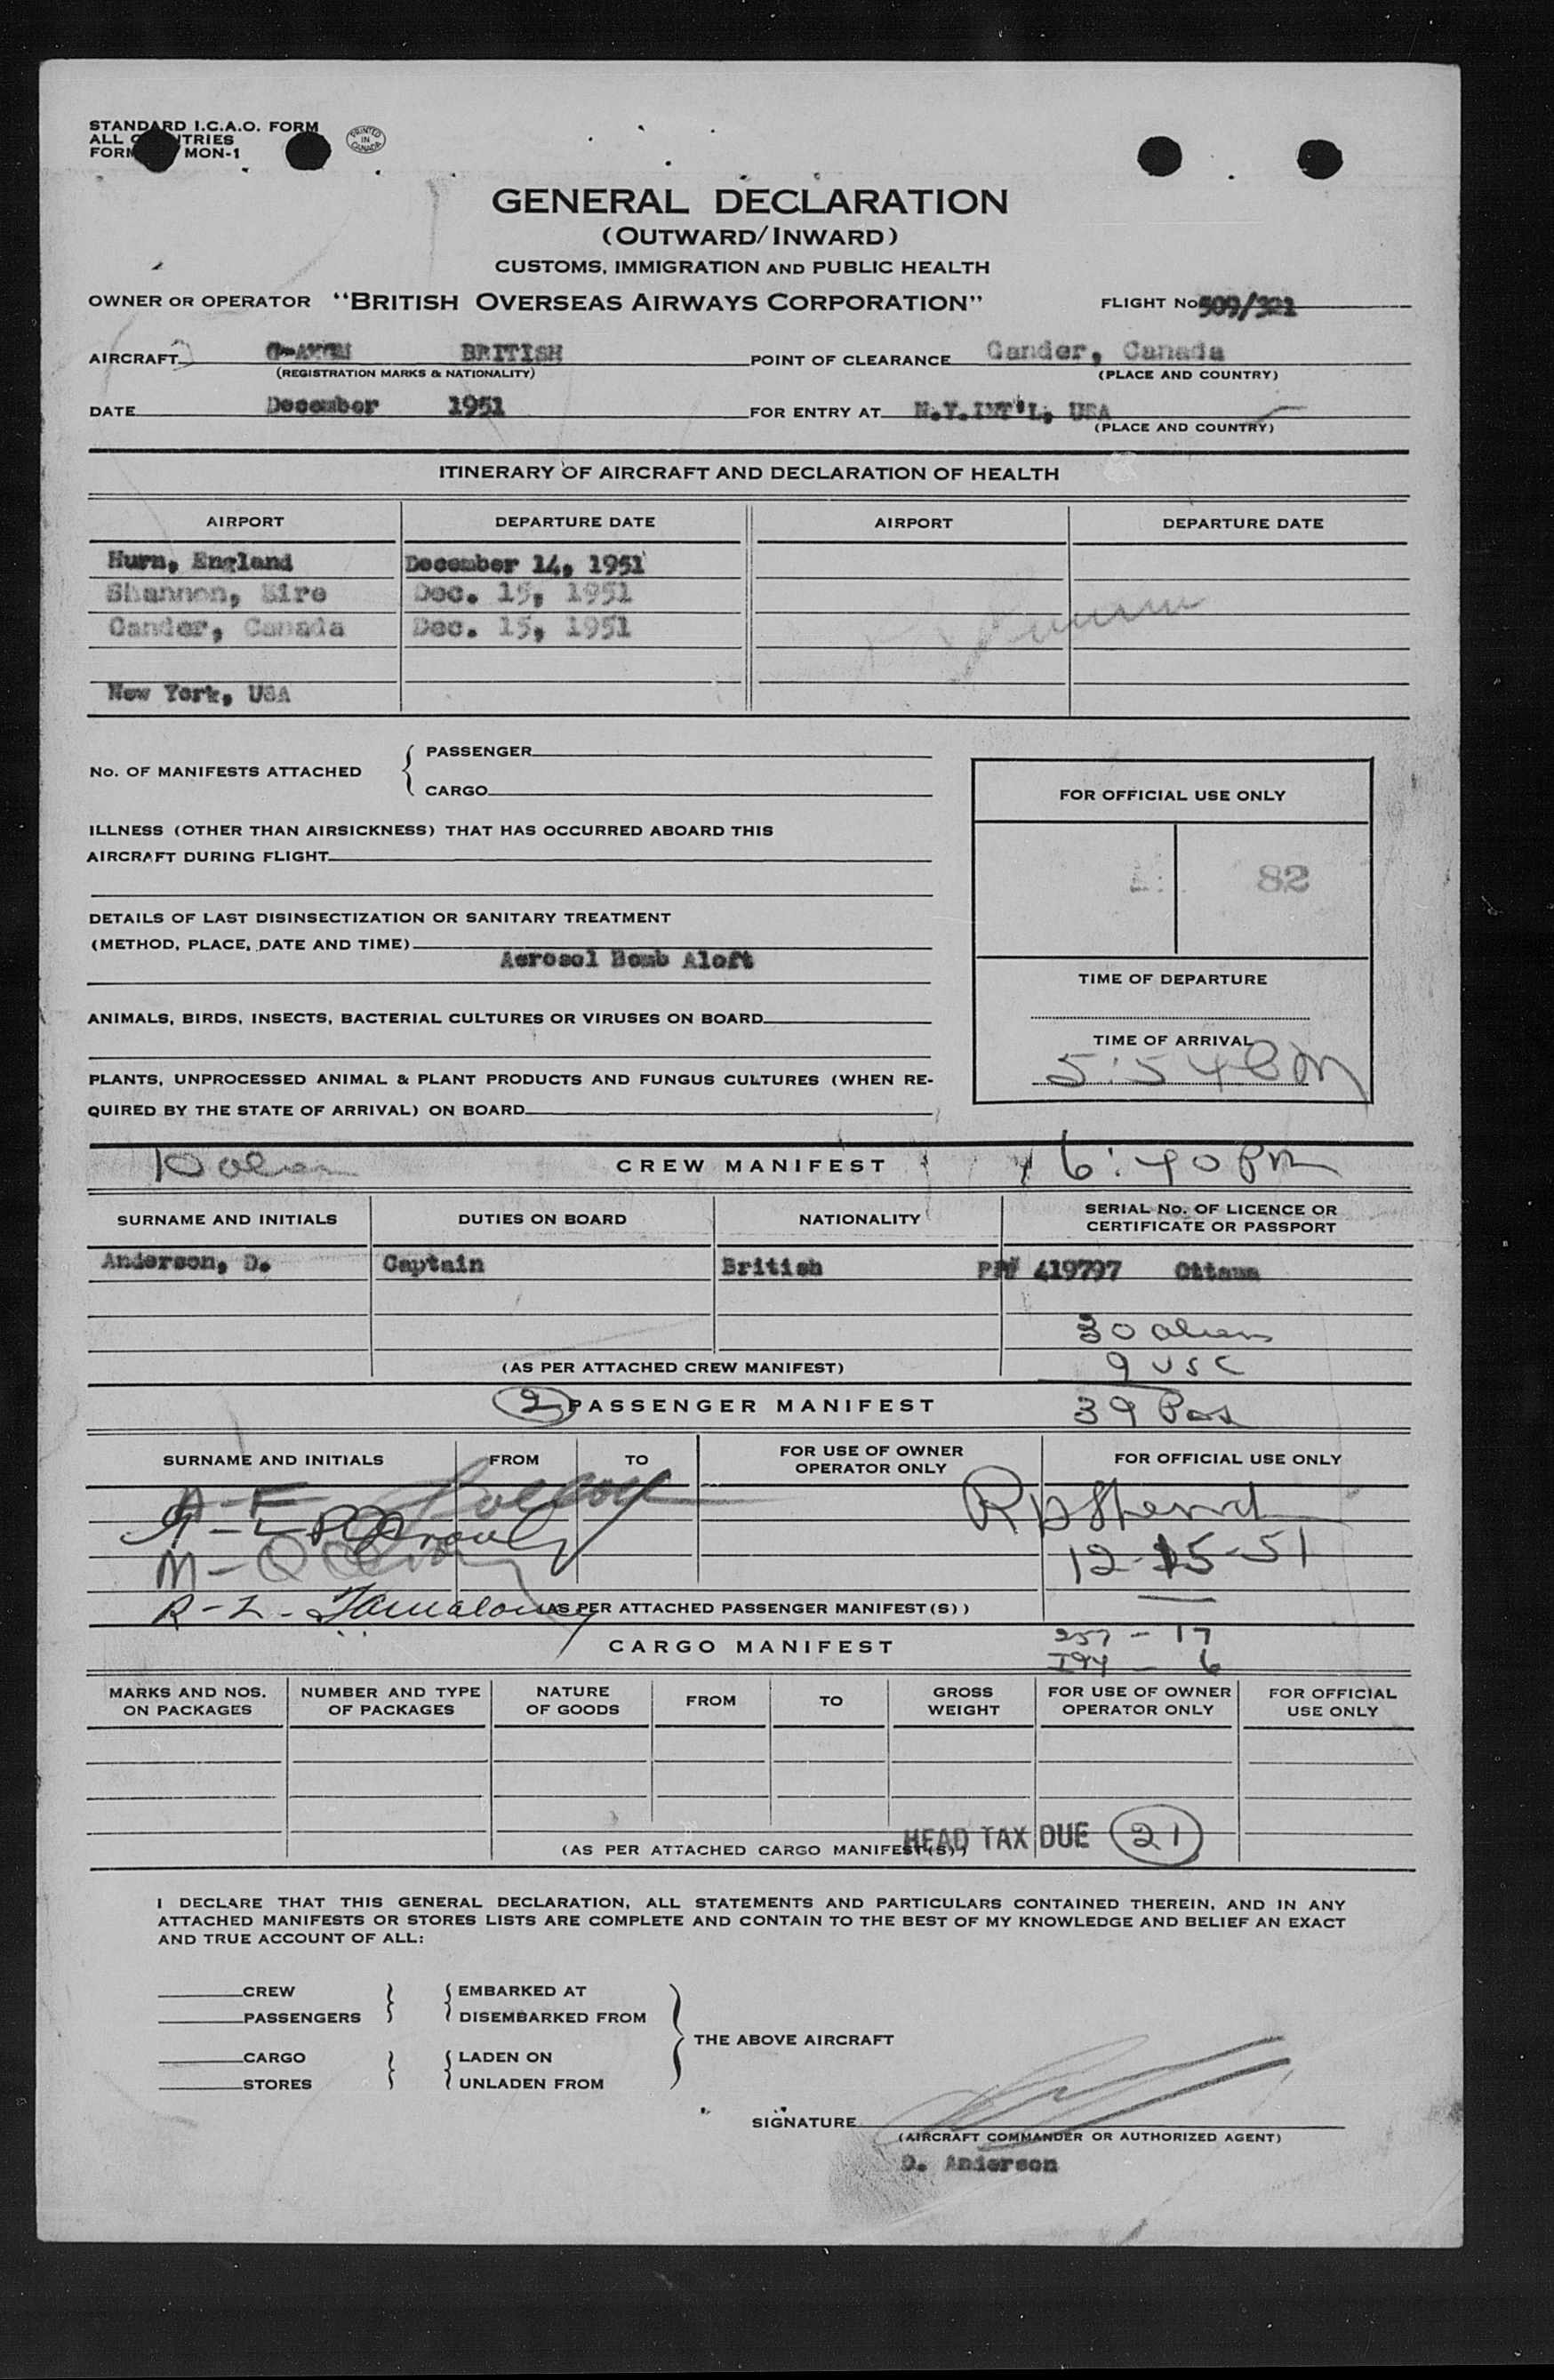 STANDARD I.C.A.O. FORM
ALL COUNTRIES
FORM MON-1
PRINTED IN CANADA
GENERAL DECLARATION
(OUTWARD/INWARD)
CUSTOMS, IMMIGRATION AND PUBLIC HEALTH
OWNER OR OPERATOR "BRITISH OVERSEAS AIRWAYS CORPORATION" FLIGHT No 509/321
AIRCRAFT BRITISH POINT OF CLEARANCE Gander, Canada
(REGISTRATION MARKS & NATIONALITY) (PLACE AND COUNTRY)
DATE December 1951 FOR ENTRY AT N.Y.INT'L, USA
(PLACE AND COUNTRY)
ITINERARY OF AIRCRAFT AND DECLARATION OF HEALTH
AIRPORT DEPARTURE DATE AIRPORT DEPARTURE DATE
Hurn, England December 14, 1951
Shannon, Eire Dec. 15, 1951
Gander, Canada Dec. 15, 1951
New York, USA
No. OF MANIFESTS ATTACHED { PASSENGER
CARGO
FOR OFFICIAL USE ONLY
ILLNESS (OTHER THAN AIRSICKNESS) THAT HAS OCCURRED ABOARD THIS
AIRCRAFT DURING FLIGHT
82
DETAILS OF LAST DISINSECTIZATION OR SANITARY TREATMENT
(METHOD, PLACE, DATE AND TIME)
Aerosol Bomb Aloft
TIME OF DEPARTURE
ANIMALS, BIRDS, INSECTS, BACTERIAL CULTURES OR VIRUSES ON BOARD
TIME OF ARRIVAL
5:54 PM
PLANTS, UNPROCESSED ANIMAL & PLANT PRODUCTS AND FUNGUS CULTURES (WHEN RE-
QUIRED BY THE STATE OF ARRIVAL) ON BOARD
10 alien CREW MANIFEST 6:40 PM
SURNAME AND INITIALS DUTIES ON BOARD NATIONALITY SERIAL No. OF LICENCE OR
CERTIFICATE OR PASSPORT
Anderson, D. Captain British PP# 419797 Ottawa
30 aliens
(AS PER ATTACHED CREW MANIFEST) 9 USC
2 PASSENGER MANIFEST 39 Pas
SURNAME AND INITIALS FROM TO FOR USE OF OWNER
OPERATOR ONLY FOR OFFICIAL USE ONLY
12-15-51
(AS PER ATTACHED PASSENGER MANIFEST(S))
CARGO MANIFEST 257 - 17
I94 - 6
MARKS AND NOS.
ON PACKAGES NUMBER AND TYPE
OF PACKAGES NATURE
OF GOODS FROM TO GROSS
WEIGHT FOR USE OF OWNER
OPERATOR ONLY FOR OFFICIAL
USE ONLY
HEAD TAX DUE 21
(AS PER ATTACHED CARGO MANIFEST(S))
I DECLARE THAT THIS GENERAL DECLARATION, ALL STATEMENTS AND PARTICULARS CONTAINED THEREIN, AND IN ANY
ATTACHED MANIFESTS OR STORES LISTS ARE COMPLETE AND CONTAIN TO THE BEST OF MY KNOWLEDGE AND BELIEF AN EXACT
AND TRUE ACCOUNT OF ALL:
CREW EMBARKED AT
PASSENGERS DISEMBARKED FROM
THE ABOVE AIRCRAFT
CARGO LADEN ON
STORES UNLADEN FROM
SIGNATURE
(AIRCRAFT COMMANDER OR AUTHORIZED AGENT)
D. Anderson